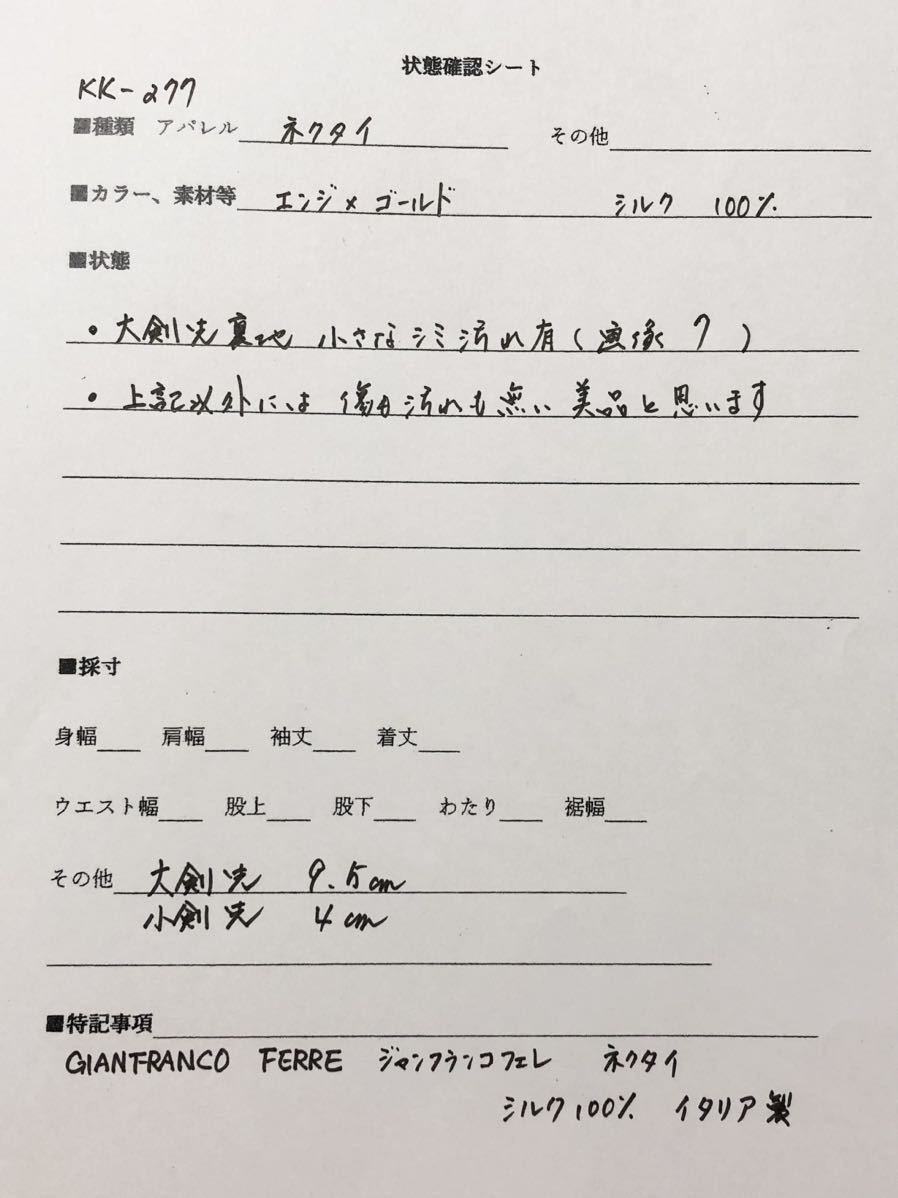 状態確認シート
KK-277
■種類 アパレル ネクタイ その他
■カラー、素材等 エンジ×ゴールド シルク 100%
■状態
• 大剣先裏地 小さなシミ汚れ有(画像 7 )
• 上記以外には 傷も汚れも無い 美品と思います
■採寸
身幅 肩幅 袖丈 着丈
ウエスト幅 股上 股下 わたり 裾幅
その他 大剣先 9.5cm
小剣先 4cm
■特記事項
GIANFRANCO FERRE ジャンフランコフェレ ネクタイ
シルク100% イタリア製